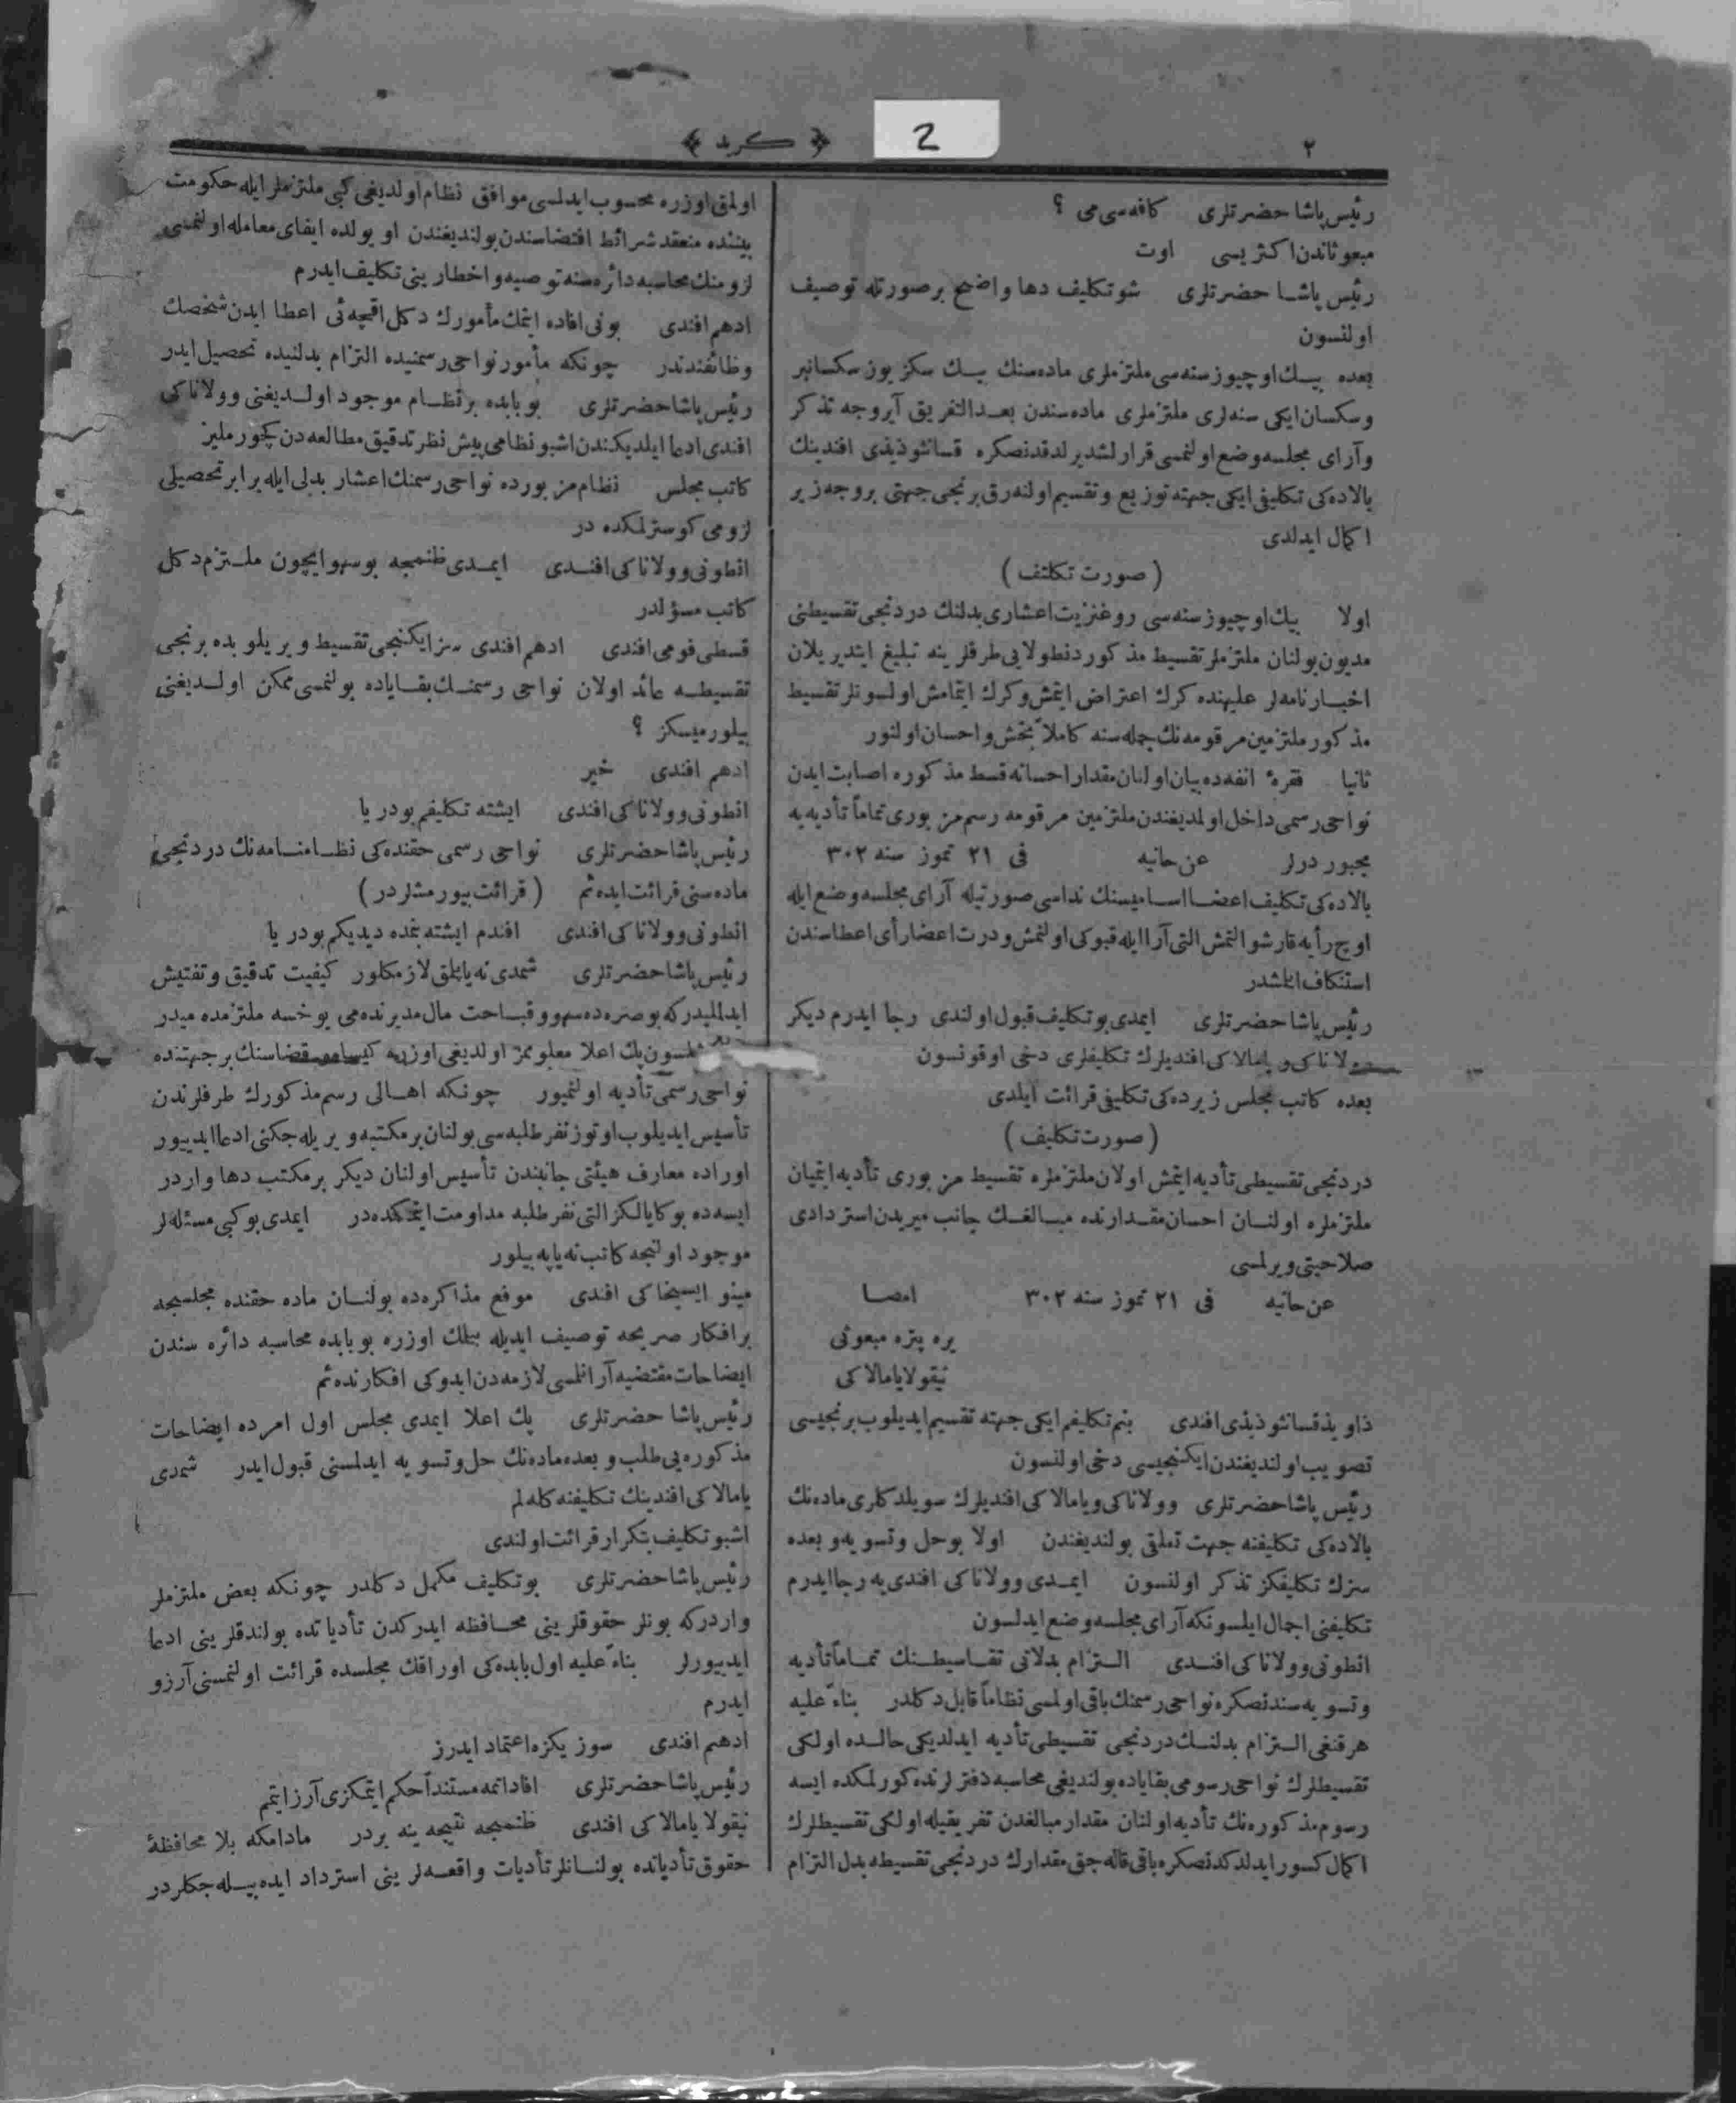 ٢
﴿ كريد ﴾
2
رئيس پاشا حضرتلری كافه‌سی می ؟
مبعوثاندن اكثريسی اوت
رئيس پاشا حضرتلری شو تكليف دها واضح بر صورتله توصيف
اولنسون
بعده بيك اوچيوز سنه‌سی ملتزملری ماده‌سنك بيك سكز يوز سكسانبر
وسكسان ايكی سنه‌لری ملتزملری ماده‌سندن بعدالتفريق آيروجه تذكر
وآرای مجلسه وضع اولنمسی قرارلشديرلدقدنصكره قسانثوذيذی افندينك
بالاده‌كی تكليفی ايكی جهته توزيع وتقسيم اولنه‌رق برنجی جهتی بروجه زير
اكمال ايدلدی
( صورت تكلتف )
اولا بيك اوچيوز سنه‌سی روغن زيت اعشاری بدلنك دردنجی تقسيطنی
مديون بولنان ملتزملر تقسيط مذكوردنطولايی طرفلرينه تبليغ ايتديريلان
اخبارنامه‌لر عليهنده كرك اعتراض ايتمش وكرك ايتمامش اولسونلر تقسيط
مذكور ملتزمين مرقومه‌نك جمله‌سنه كاملاً بخش واحسان اولنور
ثانيا فقرهٔ انفه‌ده بيان اولنان مقدار احسانه قسط مذكوره اصابت ايدن
نواحی رسمی داخل اولمديغندن ملتزمين مرقومه رسم مزبوری تماماً تأديه‌يه
مجبور درلر عن خانيه فی ٢١ تموز سنه ٣٠٢
بالاده‌كی تكليف اعضا اساميسنك نداسی صورتيله آرای مجلسه وضع ايله
اوچ رأيه قارشو التمش التی آرا ايله قبوكی اولنمش ودرت اعضا رأی اعطاسندن
استنكاف ايلشدر
رئيس پاشا حضرتلری ايمدی بو تكليف قبول اولندی رجا ايدرم ديكر
وولاناكی و يامالاكی افنديلرك تكليفلری دخی اوقونسون
بعده كاتب مجلس زيرده‌كی تكليفی قرائت ايلدی
( صورت تكليف )
دردنجی تقسيطی تأديه ايتمش اولان ملتزملره تقسيط مزبوری تأديه ايتميان
ملتزملره اولنان احسان مقدارنده مبالغك جانب ميريدن استردادی
صلاحيتی ويرلمسی
عن خانيه فی ٢١ تموز سنه ٣٠٢ امضا
يره پتره مبعوثی
نيقولا يامالاكی
ذاويذ قسانثوذيذی افندی بنم تكليفم ايكی جهته تقسيم ايديلوب برنجيسی
تصويب اولنديغندن ايكنجيسی دخی اولنسون
رئيس پاشا حضرتلری وولاناكی ويامالاكی افنديلرك سويلدكلری ماده‌نك
بالاده‌كی تكليفنه جهت تعلقی بولنديغندن اولا بو حل وتسويه و بعده
سزك تكليفكز تذكر اولنسون ايمدی وولاناكی افندی‌يه رجا ايدرم
تكليفنی اجمال ايلسونكه آرای مجلسه وضع ايدلسون
انطونی وولاناكی افندی التزام بدلاتی تقاسيطنك تماماً تأديه
وتسويه‌سندنصكره نواحی رسمنك باقی اولمسی نظاماً قابل دكلدر بناءً عليه
هر قنغی التزام بدلنك دردنجی تقسيطی تأديه ايدلديكی حالده اولكی
تقسيطلرك نواحی رسومی بقاياده بولنديغی محاسبه دفترلرنده كورلمكده ايسه
رسوم مذكوره‌نك تأديه اولنان مقدار مبالغدن تفريقيله اولكی تقسيطلرك
اكمال كسور ايدلدكدنصكره باقی قاله‌جق مقدارك دردنجی تقسيطه بدل التزام
اولمق اوزره محسوب ايدلسی موافق نظام اولديغی كبی ملتزملر ايله حكومت
بيننده منعقد شرائط اقتضاسندن بولنديغندن او يولده ايفای معامله اولنمسی
لزومنك محاسبه دائره‌سنه توصيه و اخطارينی تكليف ايدرم
ادهم افندی بونی افاده ايتمك مأمورك دكل اقچه‌ئی اعطا ايدن شخصك
وظائفندندر چونكه مأمور نواحی رسمنيده التزام بدلنيده تحصيل ايدر
رئيس پاشا حضرتلری بو بابده بر نظام موجود اولديغنی وولاناكی
افندی ادعا ايلديكندن اشبو نظامی پيش نظر تدقيق مطالعه‌دن كچورملیز
كاتب مجلس نظام مزبورده نواحی رسمنك اعشار بدلی ايله برابر تحصيلی
لزومی كوسترلمكده در
انطونی وولاناكی افندی ايمدی ظنمجه بو سهو ايچون ملتزم دكل
كاتب مسؤلدر
قسطی فومی افندی ادهم افندی سز ايكنجی تقسيط ويريلوبده برنجی
تقسيطه عائد اولان نواحی رسمنك بقاياده بولنمسی ممكن اولديغنی
بيلورميسكز ؟
ادهم افندی خير
انطونی وولاناكی افندی ايشته تكليفم بودر يا
رئيس پاشا حضرتلری نواحی رسمی حقنده‌كی نظامنامه‌نك دردنجی
ماده‌سنی قرائت ايده‌ثم ( قرائت بيورمشلردر )
انطونی وولاناكی افندی افندم ايشته بنمده ديديكم بودر يا
رئيس پاشا حضرتلری شمدی نه ياپلق لازمكلور كيفيت تدقيق وتفتيش
ايدلميدركه بو صره‌ده سهو وقباحت مال مديرنده‌می يوخسه ملتزمده ميدر
پك اعلا معلومز اولديغی اوزره كيسامو قضاسنك بر جهتنده
نواحی رسمی تأديه اولنميور چونكه اهالی رسم مذكورك طرفلرندن
تأسيس ايديلوب اوتوز نفر طلبه‌سی بولنان بر مكتبه ويريله‌جكنی ادعا ايدييور
اوراده معارف هيئتی جانبندن تأسيس اولنان ديكر بر مكتب دها واردر
ايسه‌ده بوكا يالكز التی نفر طلبه مداومت ايتمكده‌در ايمدی بو كبی مسئله‌لر
موجود اولنجه كاتب نه ياپه بيلور
مينو ايسيخاكی افندی موقع مذاكره‌ده بولنان ماده حقنده مجلسجه
بر افكار صريحه توصيف ايديله بيلك اوزره بو بابده محاسبه دائره سندن
ايضاحات مقتضيه آرانلمسی لازمه‌دن ايدوكی افكارنده‌ثم
رئيس پاشا حضرتلری پك اعلا ايمدی مجلس اول امرده ايضاحات
مذكوره‌يی طلب و بعده ماده‌نك حل وتسويه ايدلسنی قبول ايدر شمدی
يامالاكی افندينك تكليفنه كله‌لم
اشبو تكليف بتكرار قرائت اولندی
رئيس پاشا حضرتلری بو تكليف مكمل دكلدر چونكه بعض ملتزملر
واردركه بونلر حقوقلرينی محافظه ايدركدن تأدياتده بولندقلرينی ادعا
ايدييورلر بناءً عليه اول بابده‌كی اوراقك مجلسده قرائت اولنمسنی آرزو
ايدرم
ادهم افندی سوزيكزه اعتماد ايدرز
رئيس پاشا حضرتلری افاداتمه مستنداً حكم ايتمكزی آرزو ايتمم
نيقولا يامالاكی افندی ظنمجه نتيجه ينه بردر مادامكه بلا محافظهٔ
حقوق تأدياتده بولنانلر تأديات واقعه‌لرينی استرداد ايده بيله‌جكلردر